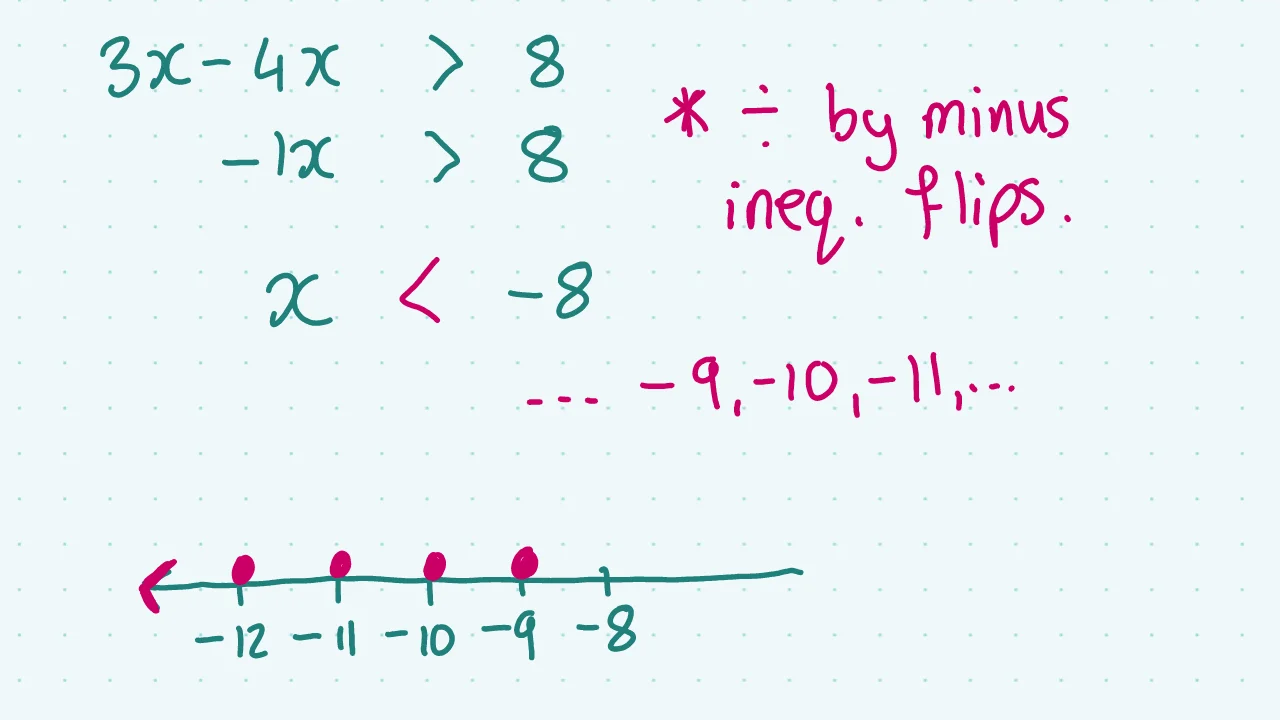 3x - 4x > 8
-1x > 8
* ÷ by minus
ineq. flips.
x < -8
--- -9, -10, -11, ...
-12 -11 -10 -9 -8